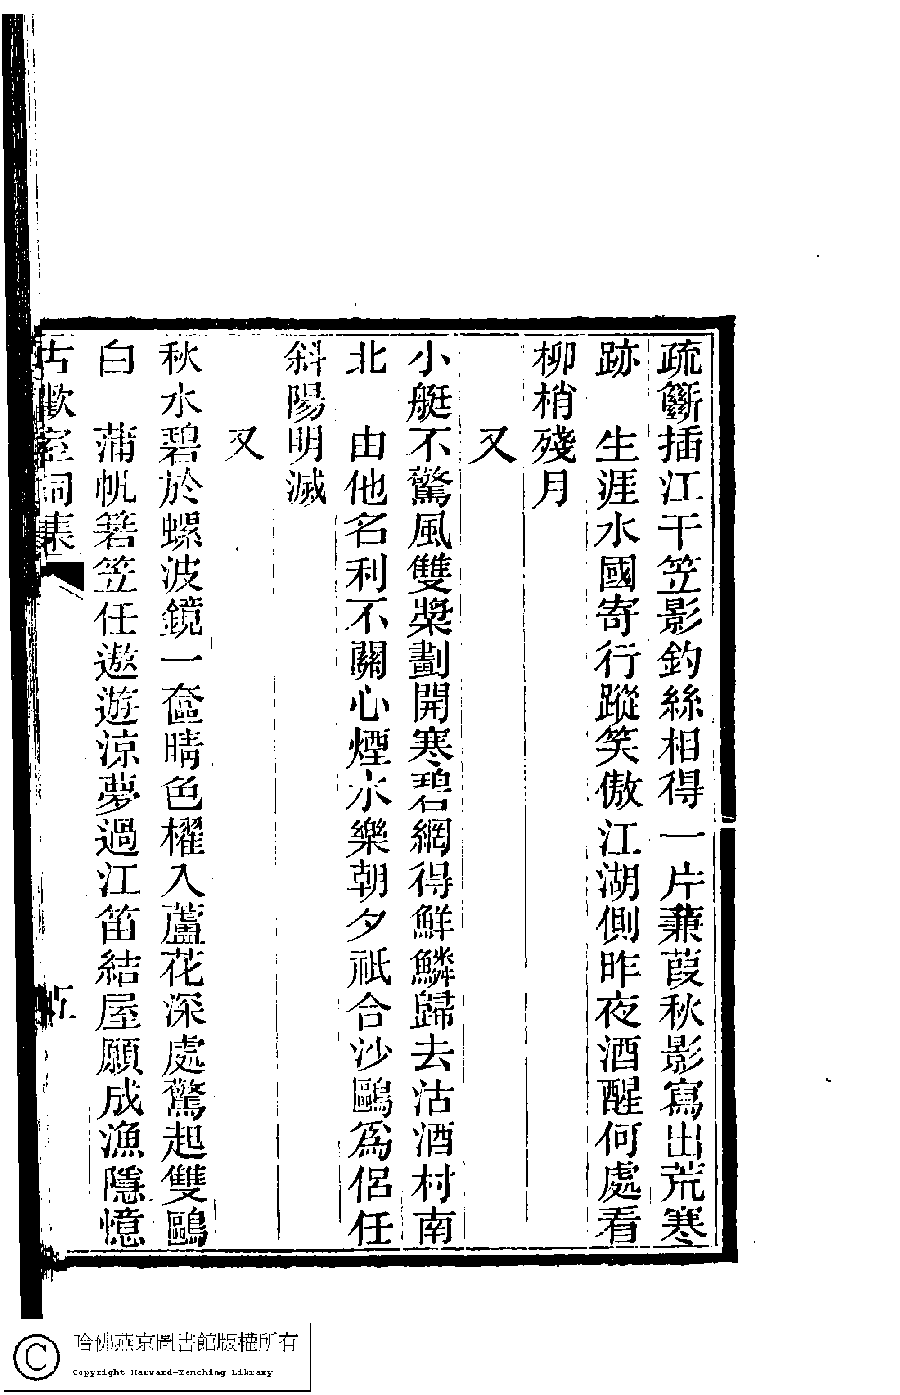 疏籪插江干笠影釣絲相得一片蒹葭秋影寫出荒寒
跡　生涯水國寄行蹤笑傲江湖側昨夜酒醒何處看
柳梢殘月
又
小艇不驚風雙槳劃開寒碧網得鮮鱗歸去沽酒村南
北　由他名利不關心煙水樂朝夕祇合沙鷗爲侶任
斜陽明滅
又
秋水碧於螺波鏡一奩晴色櫂入蘆花深處驚起雙鷗
白　蒲帆箬笠任遨遊涼夢過江笛結屋願成漁隱憶
古歡室詞集
五
哈佛燕京圖書館版權所有
Copyright Harvard-Yenching Library